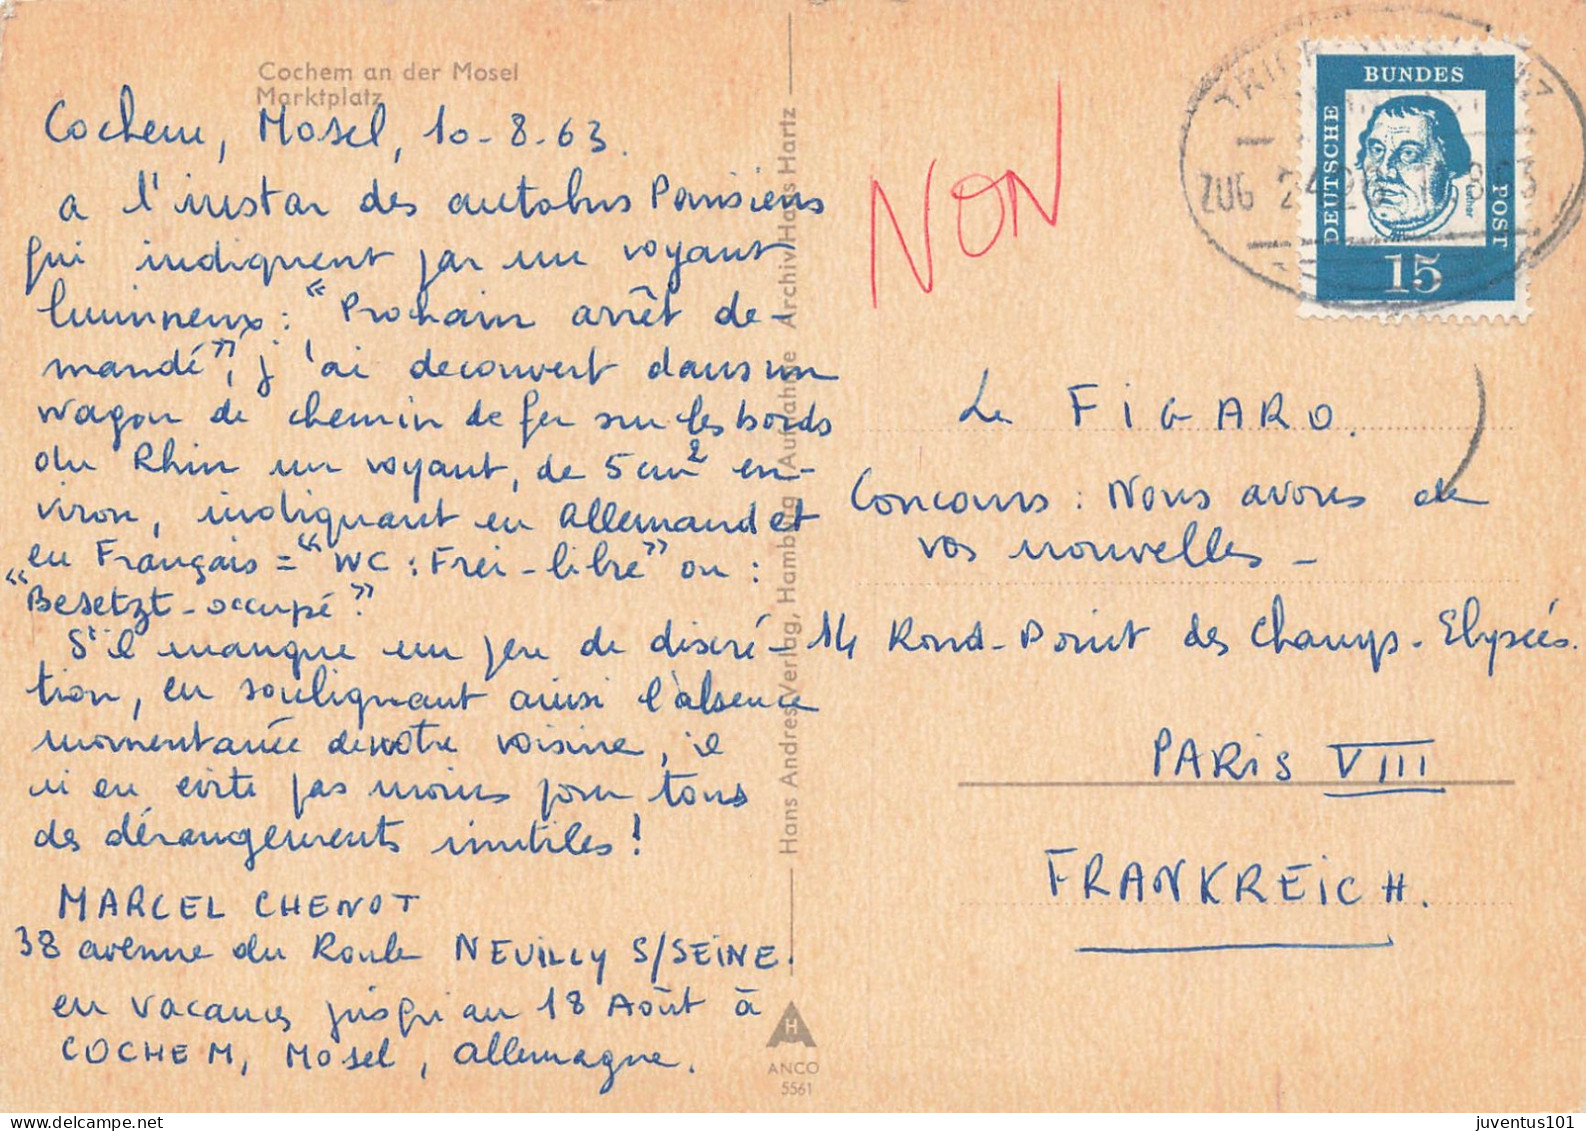 Cochem an der Mosel
Marktplatz
Cochem, Mosel, 10-8-63.
a l'instar des autobus Parisiens
qui indiquent par un voyant
lumineux : "Prochain arrêt de-
mandé", j'ai decouvert dans un
wagon de chemin de fer sur les bords
du Rhin un voyant, de 5 cm² en-
viron, indiquant en Allemand et
en Français = "WC : Frei - libre" ou :
"Besetzt - occupé."
S'il manque un peu de discré-
tion, en soulignant ainsi l'absence
momentanée de votre voisine, il
n'en evite pas moins pour tous
des dérangements inutiles !
MARCEL CHENOT
38 avenue du Roule NEUILLY S/SEINE.
en vacances jusqu'au 18 Août à
COCHEM, Mosel, Allemagne.
Hans Andres Verlag, Hamburg Aufnahme Archiv Hans Hartz
H
ANCO
5561
NON
ZUG
DEUTSCHE
BUNDES
POST
Luther
15
Le FIGARO.
Concours : Nous avons de
vos nouvelles -
14 Rond-Point des Champs-Elysées.
PARIS VIII
FRANKREICH.
juventus101